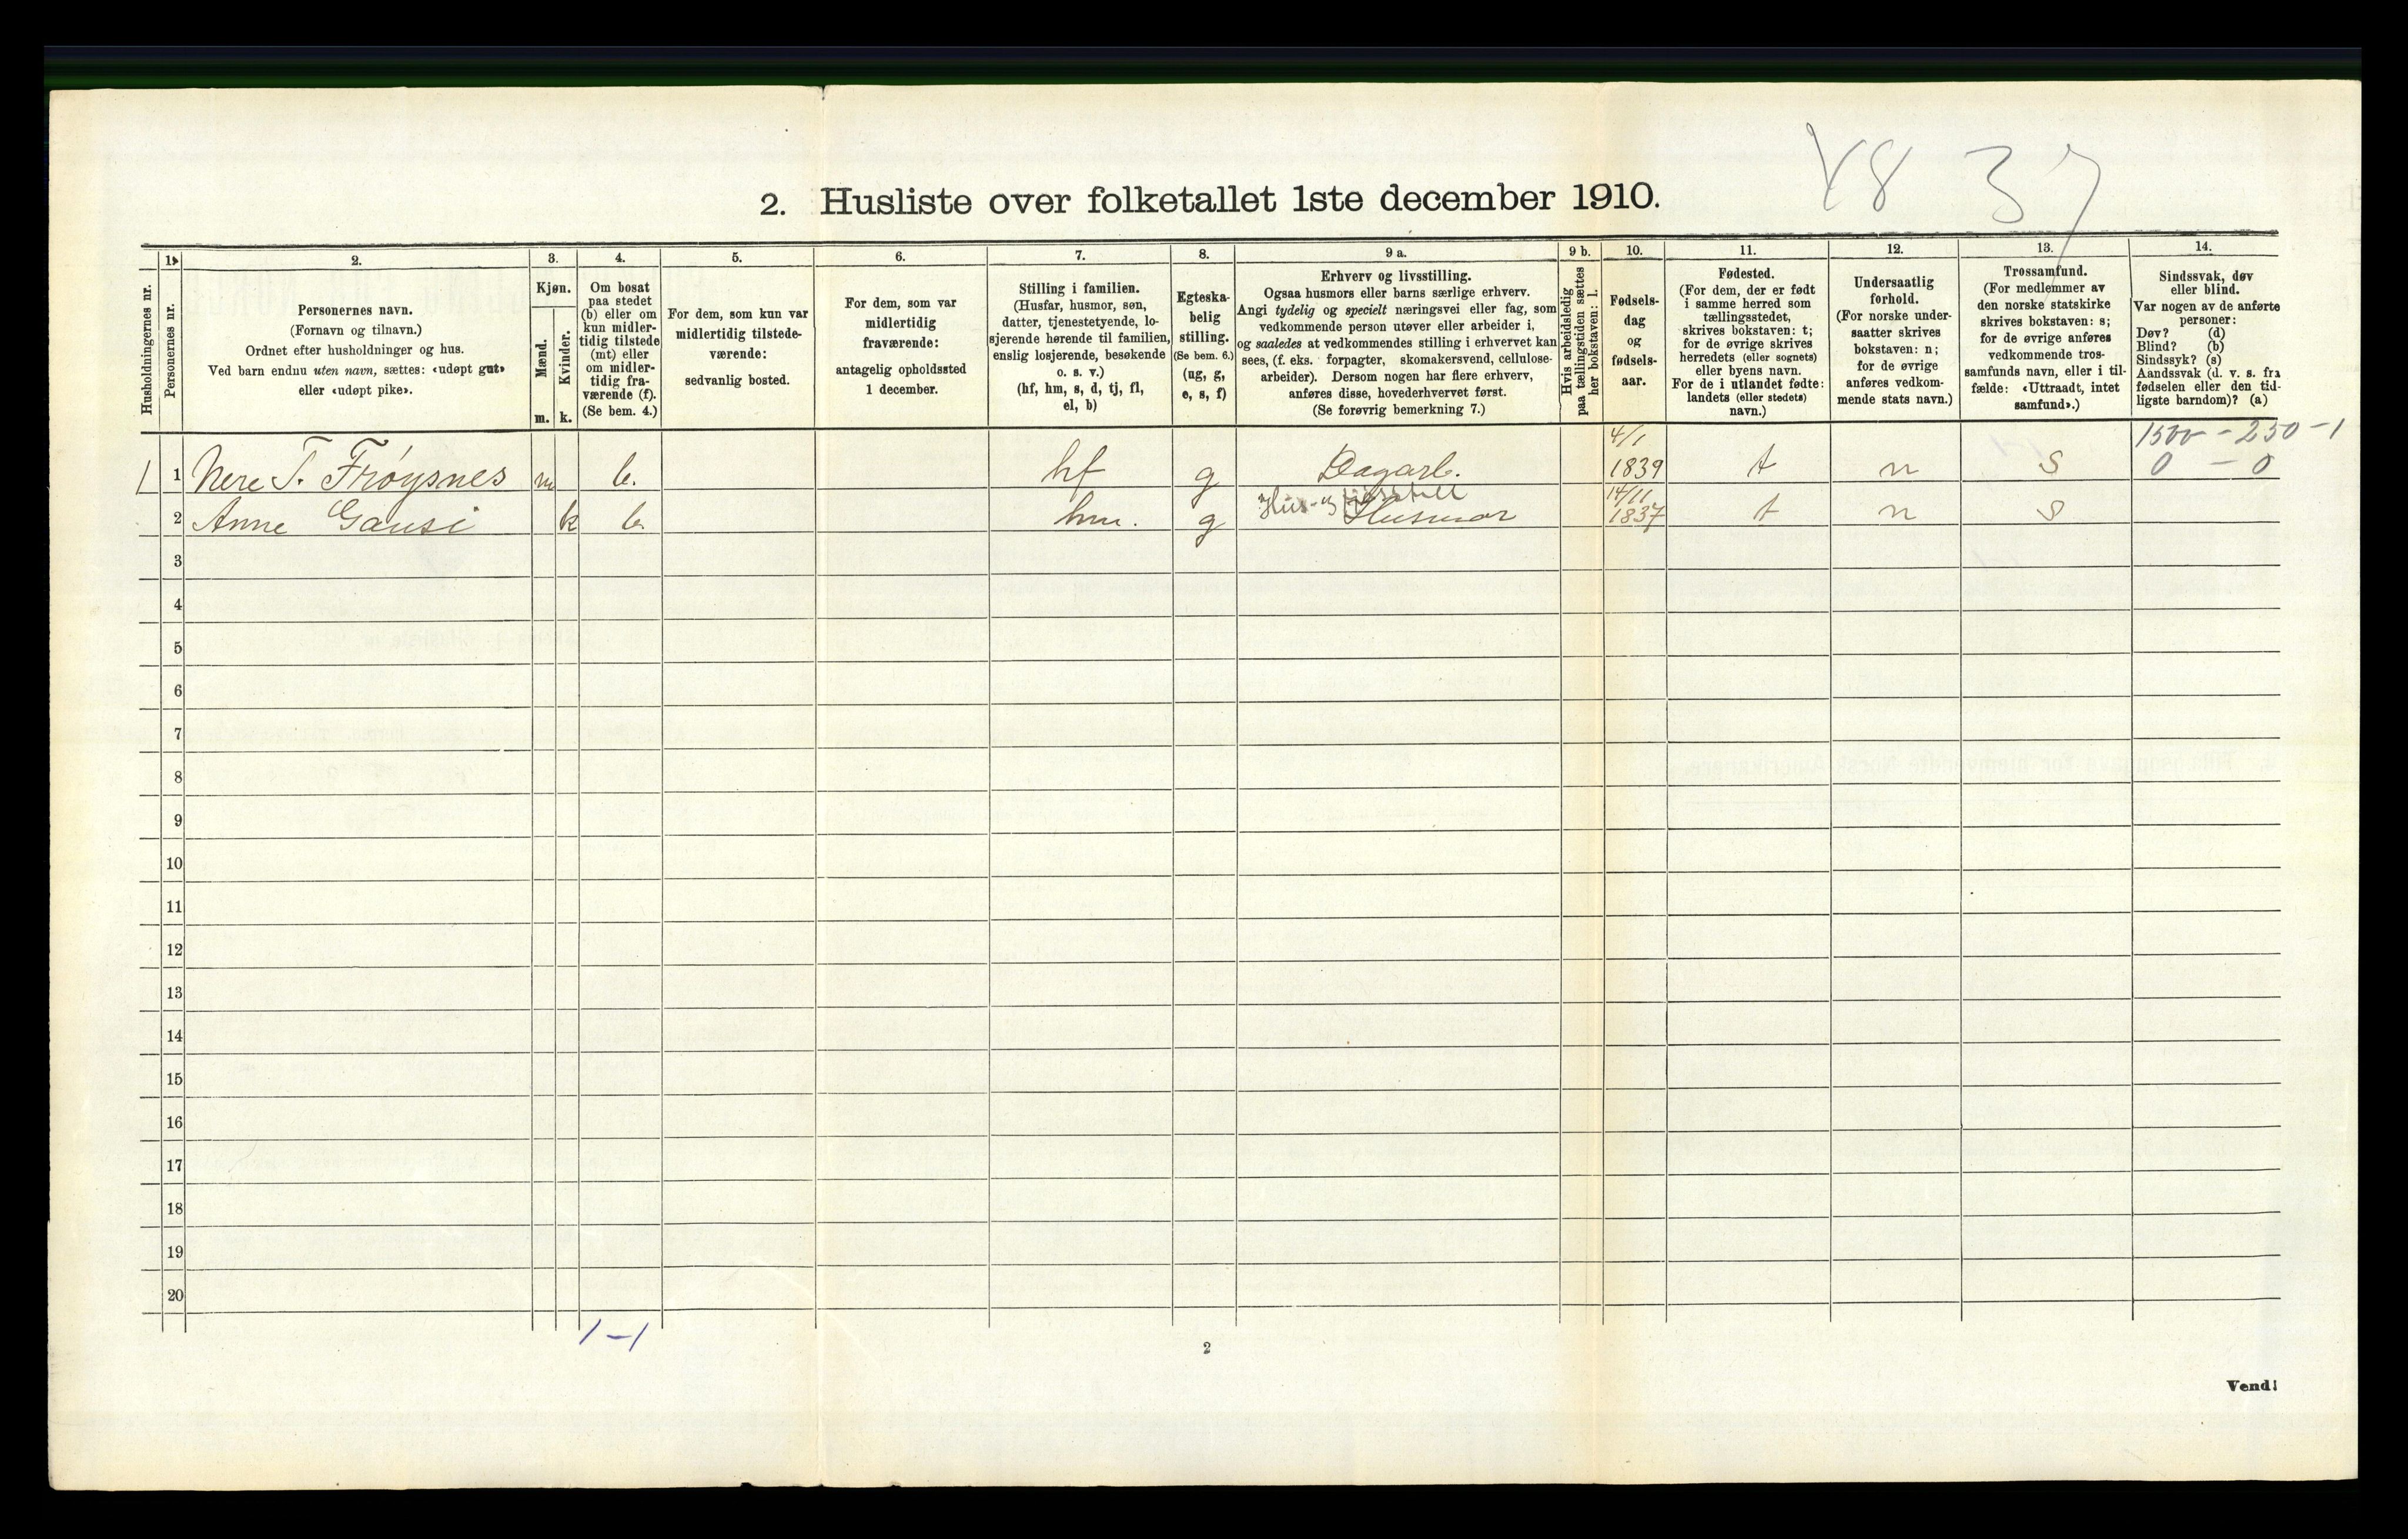 48 37
2. Husliste over folketallet 1ste december 1910.
Husholdningernes nr.
1.
Personernes nr.
2.
Personernes navn.
(Fornavn og tilnavn.)
Ordnet efter husholdninger og hus.
Ved barn endnu uten navn, sættes: «udøpt gut»
eller «udøpt pike».
3.
Kjøn.
Mænd.
m.
Kvinder.
k.
4.
Om bosat
paa stedet
(b) eller om
kun midler-
tidig tilstede
(mt) eller
om midler-
tidig fra-
værende (f).
(Se bem. 4.)
5.
For dem, som kun var
midlertidig tilstede-
værende:
sedvanlig bosted.
6.
For dem, som var
midlertidig
fraværende:
antagelig opholdssted
1 december.
7.
Stilling i familien.
(Husfar, husmor, søn,
datter, tjenestetyende, lo-
sjerende hørende til familien,
enslig losjerende, besøkende
o. s. v.)
(hf, hm, s, d, tj, fl,
el, b)
8.
Egteska-
belig
stilling.
(Se bem. 6.)
(ug, g,
e, s, f)
9 a.
Erhverv og livsstilling.
Ogsaa husmors eller barns særlige erhverv.
Angi tydelig og specielt næringsvei eller fag, som
vedkommende person utøver eller arbeider i,
og saaledes at vedkommendes stilling i erhvervet kan
sees, (f. eks. forpagter, skomakersvend, cellulose-
arbeider). Dersom nogen har flere erhverv,
anføres disse, hovederhvervet først.
(Se forøvrig bemerkning 7.)
9 b.
Hvis arbeidsledig
paa tællingstiden sættes
her bokstaven: l.
10.
Fødsels-
dag
og
fødsels-
aar.
11.
Fødested.
(For dem, der er født
i samme herred som
tællingsstedet,
skrives bokstaven: t;
for de øvrige skrives
herredets (eller sognets)
eller byens navn.
For de i utlandet fødte:
landets (eller stedets)
navn.)
12.
Undersaatlig
forhold.
(For norske under-
saatter skrives
bokstaven: n;
for de øvrige
anføres vedkom-
mende stats navn.)
13.
Trossamfund.
(For medlemmer av
den norske statskirke
skrives bokstaven: s;
for de øvrige anføres
vedkommende tros-
samfunds navn, eller i til-
fælde: «Uttraadt, intet
samfund».)
14.
Sindssvak, døv
eller blind.
Var nogen av de anførte
personer:
Døv? (d)
Blind? (b)
Sindssyk? (s)
Aandssvak (d. v. s. fra
fødselen eller den tid-
ligste barndom)? (a)
1500 - 250 - 1
1 1 Nere T. Frøysnes m b. hf g Dagarb. 4/1 1839 t n S 0 - 0
Hus-
2 Anne Gausi k b. hm. g Husmor 14/11 1837 t n S
3
4
5
6
7
8
9
10
11
12
13
14
15
16
17
18
19
20
1-1
2
Vend!